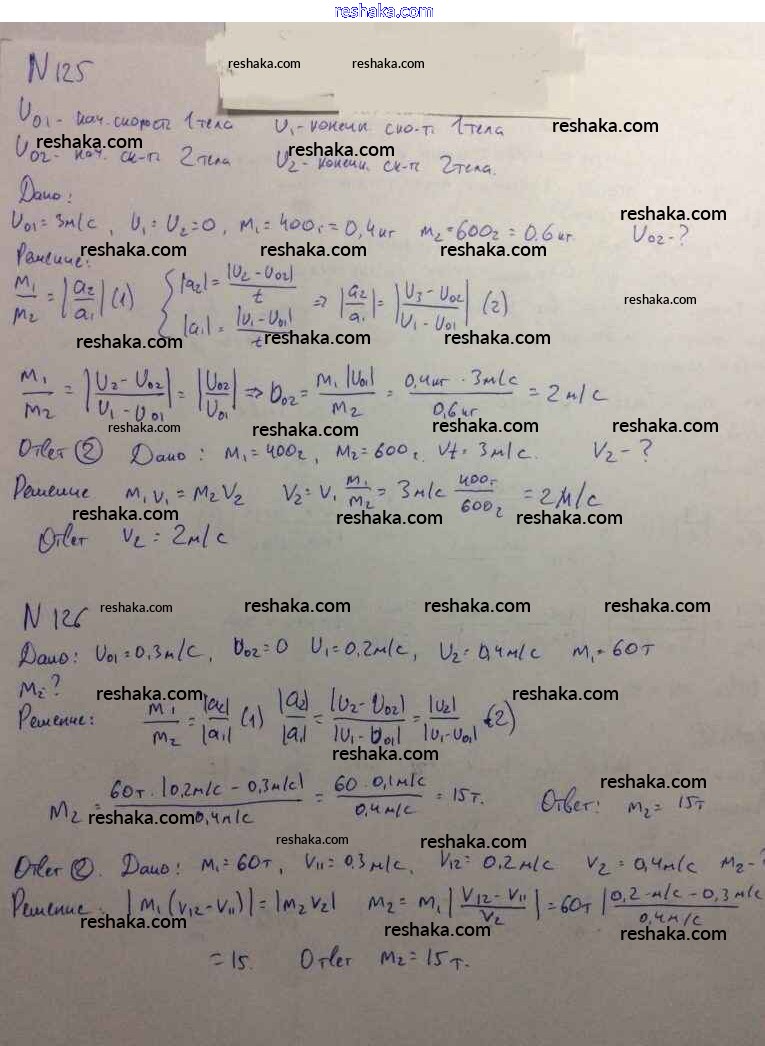 reshaka.com
N125
reshaka.com reshaka.com
U01 - нач. скорость 1 тела U1 - конечн. ско-ть 1 тела reshaka.com
reshaka.com reshaka.com
U02 - нач. ск-ть 2 тела U2 - конечн. ск-ть 2 тела.
Дано:
reshaka.com
U01 = 3 м/с, U1 = U2 = 0, m1 = 400г = 0,4 кг m2 = 600г = 0.6 кг U02 - ?
reshaka.com reshaka.com reshaka.com
Решение:
m1/m2 = |a2/a1| (1) { |a2| = |U2 - U02|/t |a1| = |U1 - U01|/t => |a2/a1| = |U3 - U02/U1 - U01| (2)
reshaka.com
reshaka.com reshaka.com reshaka.com
m1/m2 = |U2 - U02/U1 - U01| = |U02/U01| => U02 = m1|U01|/m2 = 0,4 кг · 3 м/с/0,6 кг = 2 м/с
reshaka.com reshaka.com reshaka.com reshaka.com
Ответ (2) Дано: m1 = 400г, m2 = 600г. V1 = 3 м/с. V2 - ?
Решение m1 V1 = m2 V2 V2 = V1 m1/m2 = 3 м/с 400г/600г = 2 м/с
reshaka.com reshaka.com reshaka.com
Ответ V2 = 2 м/с
N 126 reshaka.com reshaka.com reshaka.com reshaka.com
Дано: U01 = 0,3 м/с, U02 = 0 U1 = 0,2 м/с, U2 = 0,4 м/с m1 = 60т
m2 ?
reshaka.com reshaka.com reshaka.com
Решение: m1/m2 = |a2|/|a1| (1) |a2|/|a1| = |U2 - U02|/|U1 - U01| = |U2|/|U1 - U01| (2)
reshaka.com
reshaka.com
m2 = 60т · |0,2 м/с - 0,3 м/с|/0,4 м/с = 60 · 0,1 м/с/0,4 м/с = 15т. Ответ: m2 = 15т
reshaka.com reshaka.com
reshaka.com reshaka.com
Ответ (2). Дано: m1 = 60т, V11 = 0.3 м/с, V12 = 0.2 м/с V2 = 0,4 м/с m2 - ?
Решение: |m1 (V12 - V11)| = |m2 V2| m2 = m1 |V12 - V11/V2| = 60т |0,2 м/с - 0,3 м/с/0,4 м/с
reshaka.com reshaka.com reshaka.com
= 15. Ответ m2 = 15 т.